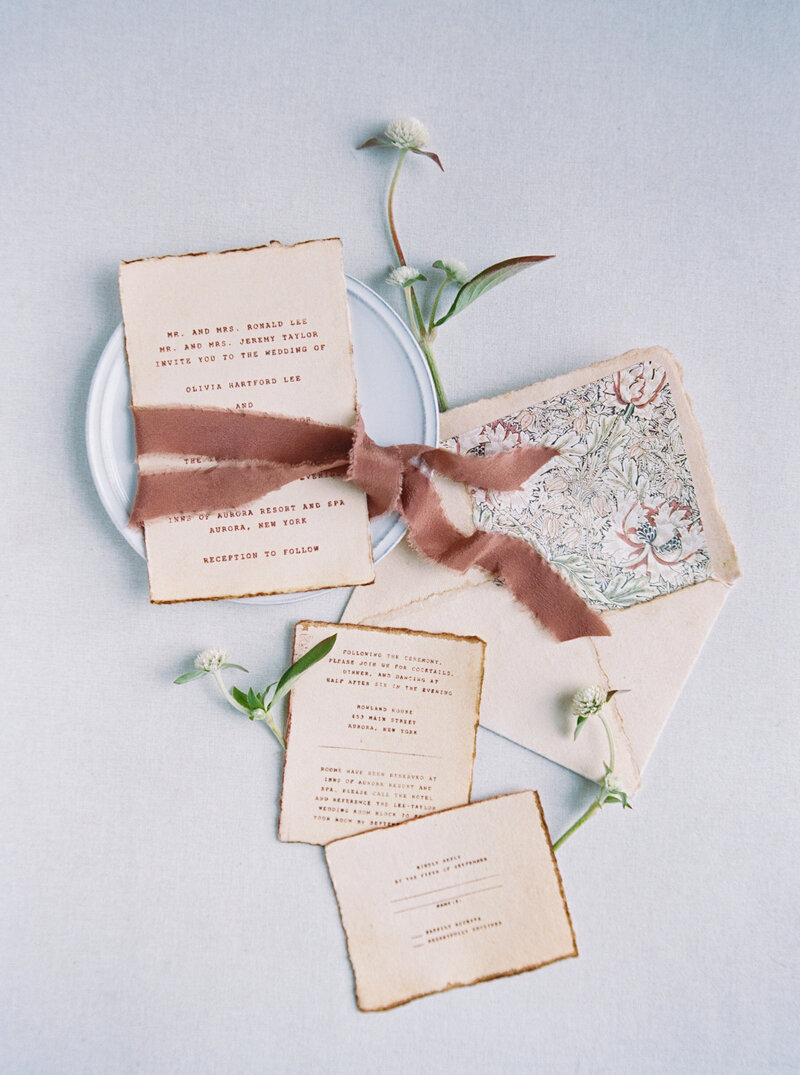 MR. AND MRS. RONALD LEE
MR. AND MRS. JEREMY TAYLOR
INVITE YOU TO THE WEDDING OF
OLIVIA HARTFORD LEE
AND
INNS OF AURORA RESORT AND SPA
AURORA, NEW YORK
RECEPTION TO FOLLOW
FOLLOWING THE CEREMONY,
PLEASE JOIN US FOR COCKTAILS,
DINNER, AND DANCING AT
HALF AFTER SIX IN THE EVENING
ROWLAND HOUSE
453 MAIN STREET
AURORA, NEW YORK
ROOMS HAVE BEEN RESERVED AT
INNS OF AURORA RESORT AND
SPA. PLEASE CALL THE HOTEL
AND REFERENCE THE LEE-TAYLOR
WEDDING ROOM BLOCK TO
YOUR ROOM BY
KINDLY REPLY
BY THE FIRST OF SEPTEMBER
NAME(S)
HAPPILY ACCEPTS
REGRETFULLY DECLINES